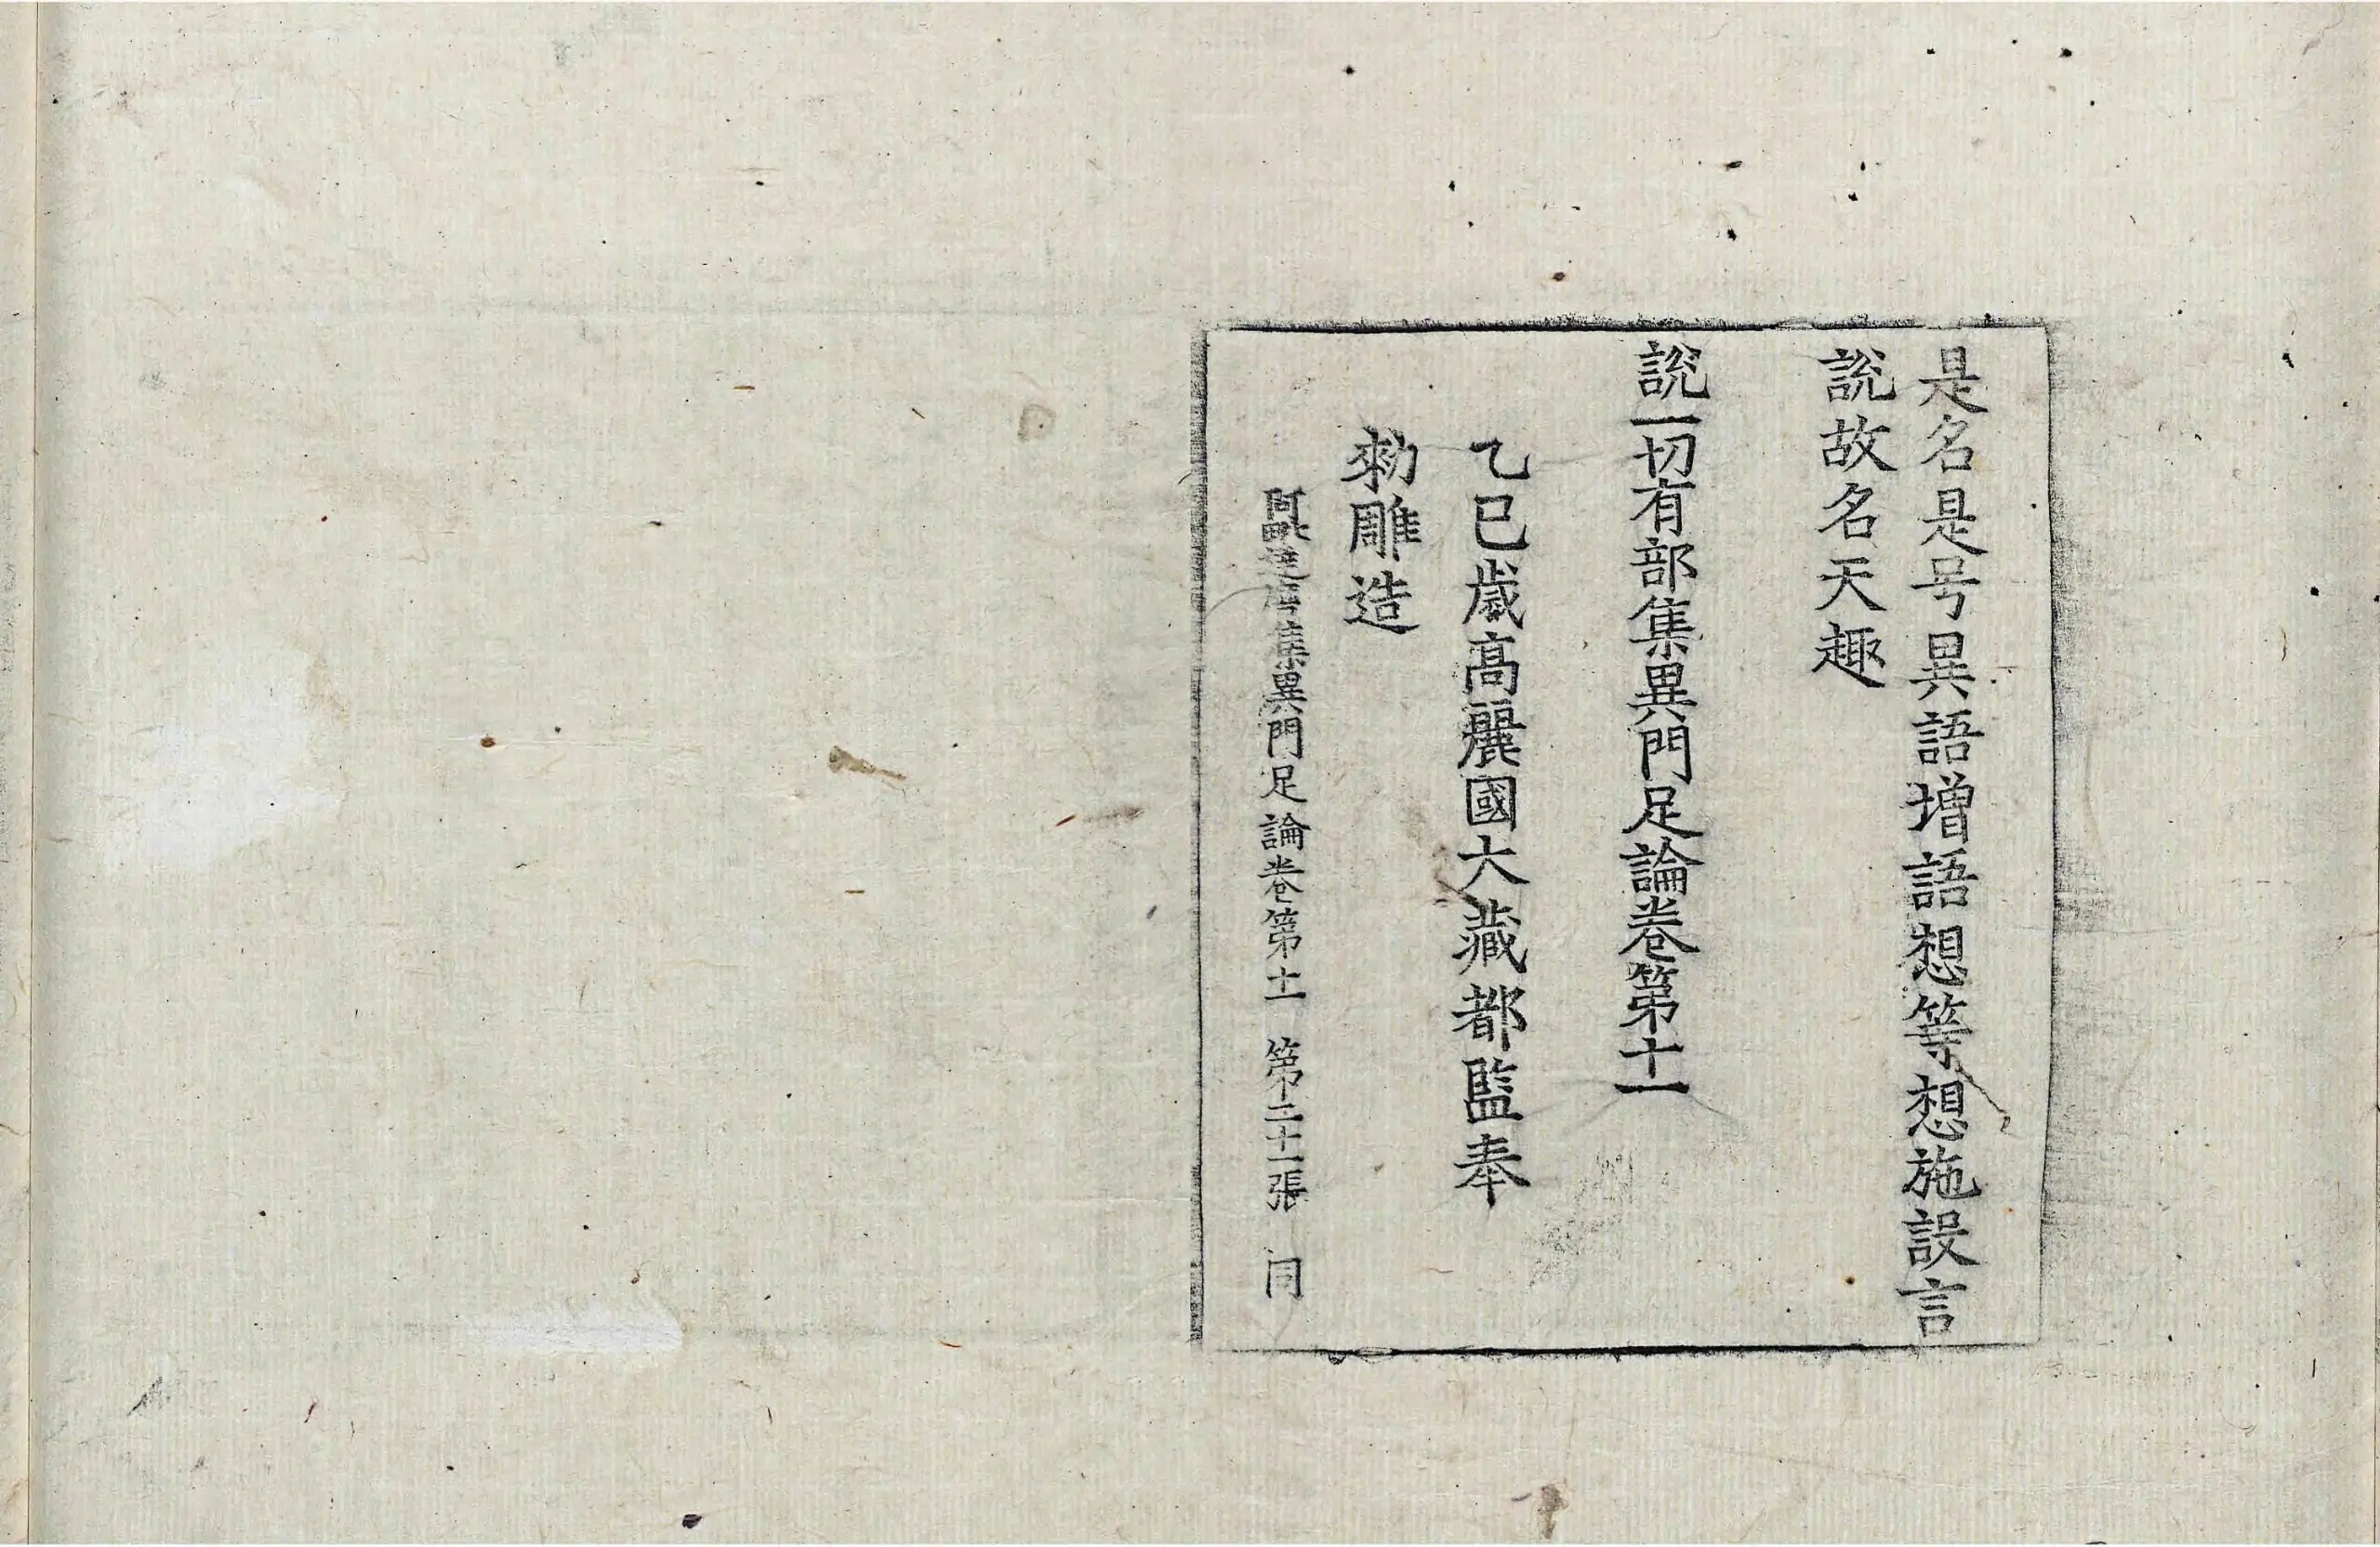 是名是号異語增語想等想施設言
說故名天趣
說一切有部集異門足論卷第十一
乙巳歲高麗國大藏都監奉
勑雕造
阿毗達磨集異門足論卷第十一 第二十一張 同